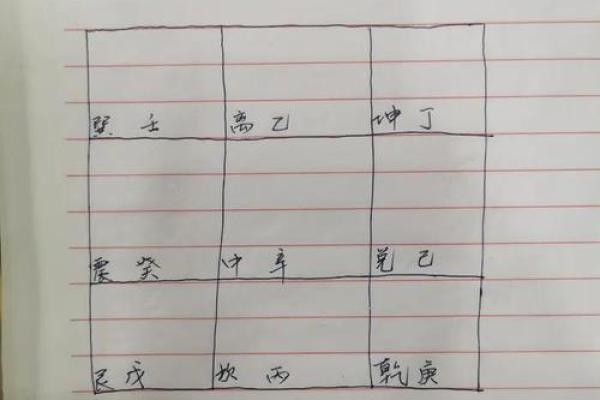 巽 壬 离 乙 坤 丁
震 癸 中 辛 兑 己
艮 戊 坎 丙 乾 庚